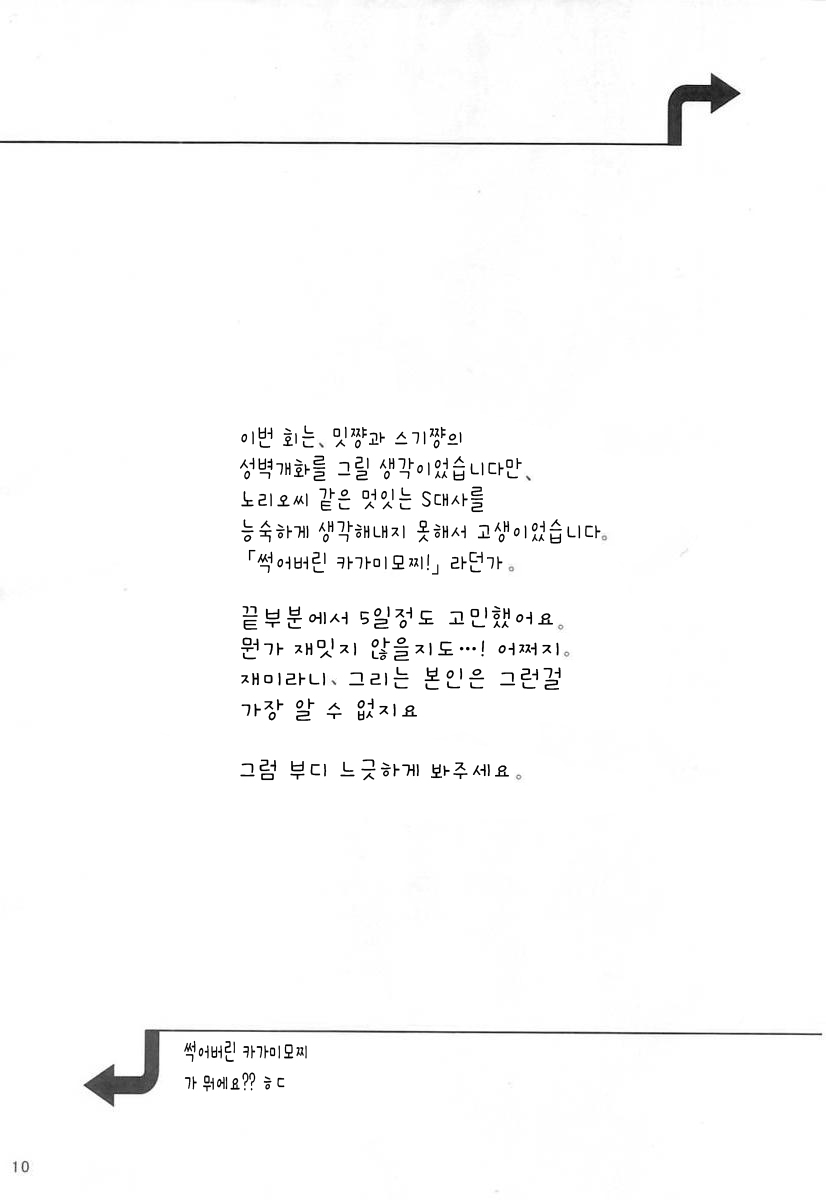 이번 회는、밋쨩과 스기쨩의
성벽개화를 그릴 생각이었습니다만、
노리오씨 같은 멋있는 S대사를
능숙하게 생각해내지 못해서 고생이었습니다。
「썩어버린 카가미모찌!」라던가。
끝부분에서 5일정도 고민했어요。
뭔가 재밋지 않을지도…! 어쩌지。
재미라니、그리는 본인은 그런걸
가장 알 수 없지요
그럼 부디 느긋하게 봐주세요。
썩어버린 카가미모찌
가 뭐에요?? ㅎㄷ
10